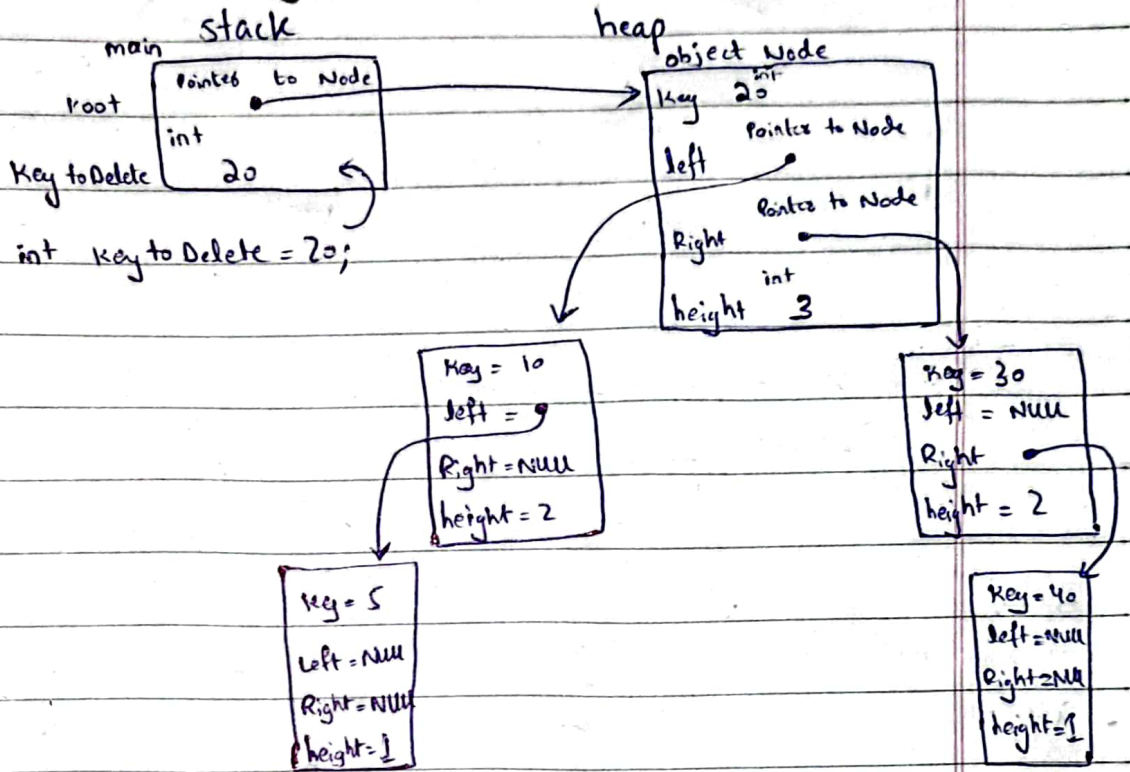 stack
heap
main
object Node
Pointer to Node
root
int
Key to Delete
20
int Key to Delete = 20;
int
Key 20
Pointer to Node
left
Pointer to Node
Right
int
height 3
Key = 10
left =
Right = NULL
height = 2
Key = 30
left = NULL
Right
height = 2
Key = 5
Left = NULL
Right = NULL
height = 1
Key = 40
left = NULL
Right = NULL
height = 1